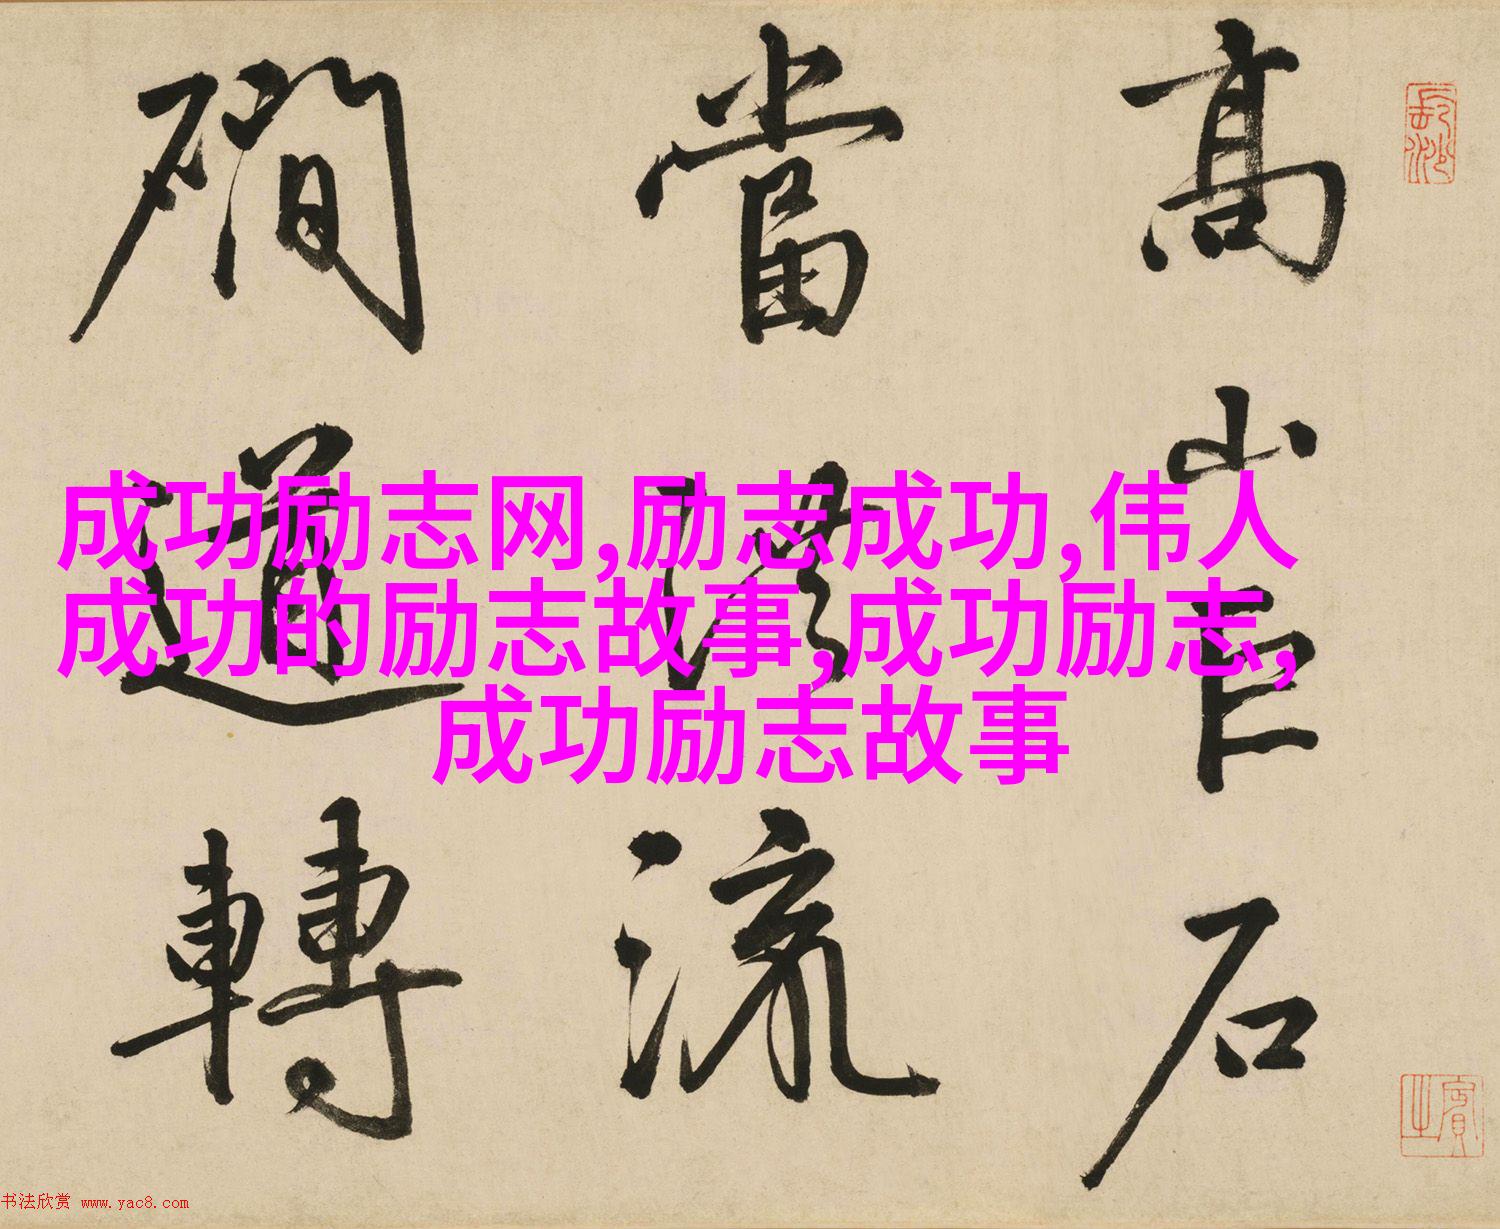 高山巨石
當流
磵道轉
成功励志网,励志成功,伟人
成功的励志故事,成功励志,
成功励志故事
长沙
賓之
书法欣赏 www.yac8.com